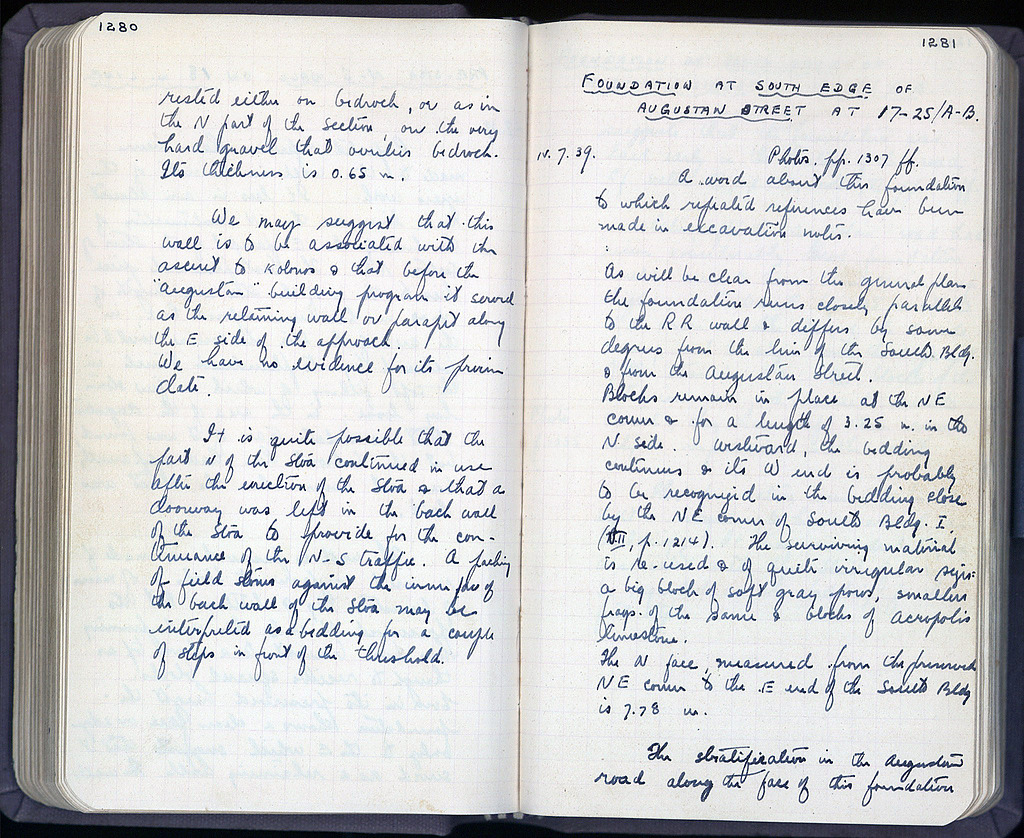 1280
rested either on bedrock, or as in
the N part of the section, on the very
hard gravel that overlies bedrock.
Its thickness is 0.65 m.
We may suggest that this
wall is to be associated with the
ascent to Kolonos & that before the
"Augustan" building program it served
as the retaining wall or parapet along
the E side of the approach.
We have no evidence for its precise
date.
It is quite possible that the
part N of the Stoa continued in use
after the erection of the Stoa & that a
doorway was left in the back wall
of the Stoa to provide for the con-
tinuance of the N-S traffic. A packing
of field stones against the inner face of
the back wall of the Stoa may be
interpreted as a bedding for a couple
of steps in front of the threshold.
1281
FOUNDATION AT SOUTH EDGE OF
AUGUSTAN STREET AT 17-25/A-B.
IV. 7. 39. Photos. pp. 1307 ff.
A word about this foundation
to which repeated references have been
made in excavation notes.
As will be clear from the general plan
the foundation runs closely parallel
to the RR wall & differs by some
degrees from the line of the South Bldg.
& from the Augustan Street.
Blocks remain in place at the NE
corner & for a length of 3.25 m. in the
N side. Westward, the bedding
continues & its W end is probably
to be recognized in the bedding close
by the NE corner of South Bldg. I.
(VII, p. 1214). The surviving material
is re-used & of quite irregular size:
a big block of soft gray poros, smaller
frags. of the same & blocks of acropolis
limestone.
The N face, measured from the preserved
NE corner to the E end of the South Bldg
is 7.78 m.
The stratification in the Augustan
road along the face of this foundation